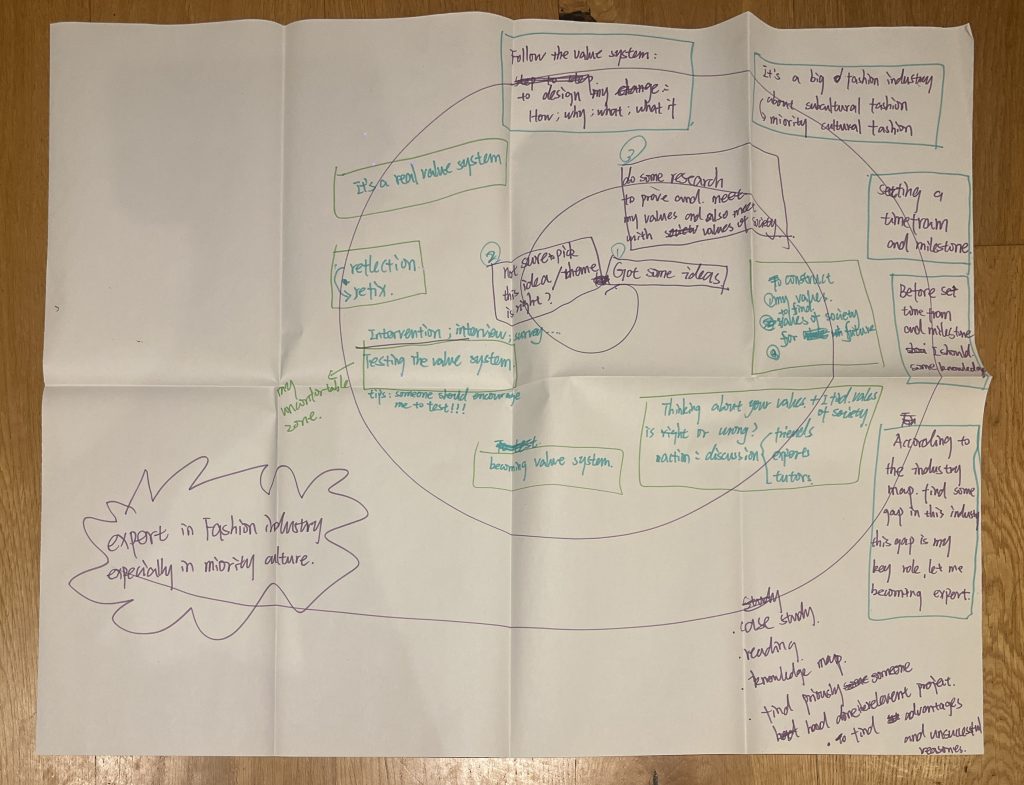 Follow the value system:
step to step
to design my change:
How; why; what; what if
It's a big fashion industry
about subcultural fashion
miority cultural fashion
It's a real value system
③
do some research
to prove and meet
my values and also meet
with society values of society
setting a
timefram
and milestone.
②
not sure pick
this idea/theme
is right?
①
Got some ideas
reflection.
refix.
To construct
① my values.
to find
② values of society
for in future
③
Before set
time fram
and milestone
I should
some knowledge
Intervention ; interview ; survey ...
Testing the value system
tips: someone should encourage
me to test!!!
my
uncomfortable
zone.
Thinking about your values + I find. values
of society.
is right or wrong?
action = discussion
friends
experts
tutors
To test
becoming value system.
According to
the industry
map. find some
gap in this industry
this gap is my
key role, let me
becoming expert.
expert in Fashion industry
especially in miority culture.
study
· case study.
· reading.
· knowledge map.
· find priously some someone
had done relevent project.
· To find advantages
and unsuccessful
reasones.